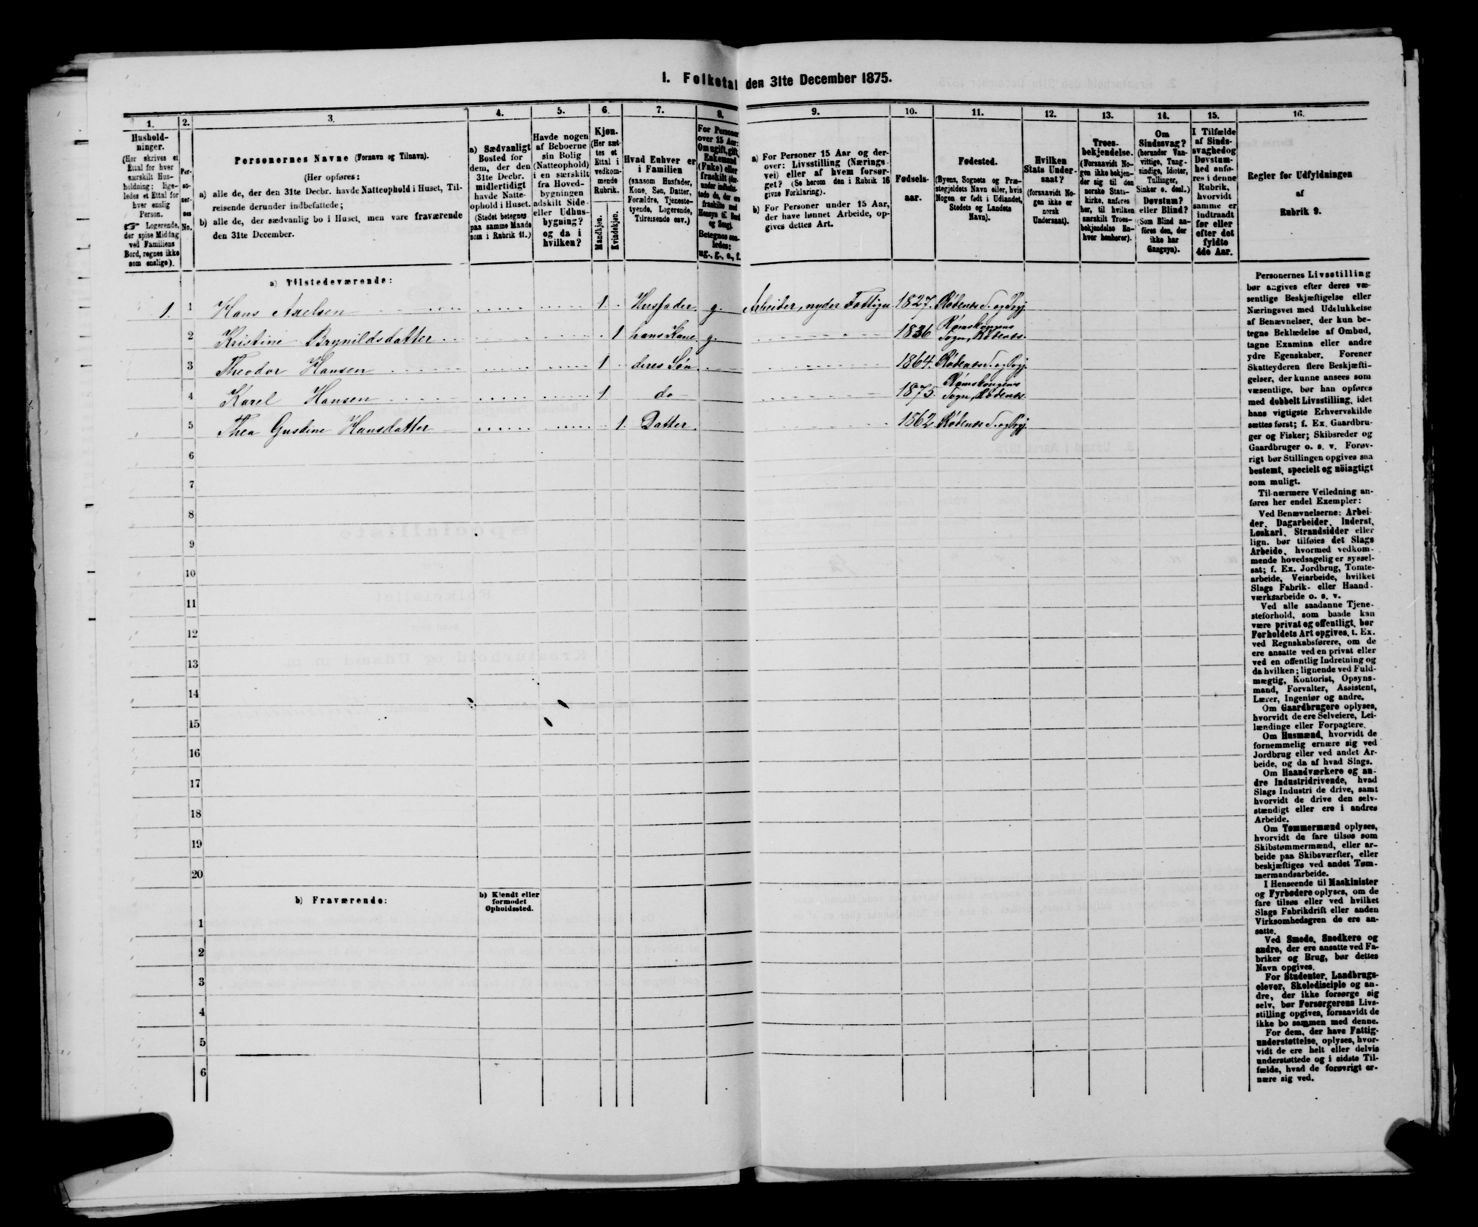 I. Folketal den 31te December 1875.
1.
Hushold-
ninger.
(Her skrives et
Ettal for hver
særskilt Hus-
holdning; lige-
ledes et Ettal for
hver enslig
Person.
☞ Logerende,
der spise Middag
ved Familiens
Bord, regnes ikke
som enslige).
2.
Per-
so-
ner-
nes
No.
3.
Personernes Navne (Fornavn og Tilnavn).
(Her opføres:
a) alle de, der den 31te Decbr. havde Natteophold i Huset, Til-
reisende derunder indbefattede;
b) alle de, der sædvanlig bo i Huset, men vare fraværende
den 31te December.
4.
a) Sædvanligt
Bosted for
dem, der den
31te Decbr.
midlertidigt
havde Natte-
ophold i Huset.
(Stedet betegnes
paa samme Maade
som i Rubrik 11.)
5.
Havde nogen
af Beboerne
sin Bolig
(Natteophold)
i en særskilt
fra Hoved-
bygningen
adskilt Side-
eller Udhus-
bygning?
og da i
hvilken?
6.
Kjøn.
(Her sæt-
tes et
Ettal i
vedkom-
mende
Rubrik.
Mandkjøn.
Kvindekjøn.
7.
Hvad Enhver er
i Familien
(saasom Husfader,
Kone, Søn, Datter,
Forældre, Tjeneste-
tyende, Logerende,
Tilreisende osv.)
8.
For Personer
over 15 Aar:
Om ugift, gift,
Enkemand
(Enke) eller
fraskilt
9.
a) For Personer 15 Aar og der-
over: Livsstilling (Nærings-
vei) eller af hvem forsør-
get? (Se herom den i Rubrik 16
givne Forklaring).
b) For Personer under 15 Aar,
der have lønnet Arbeide, op-
gives dettes Art.
10.
Fødsels-
aar.
11.
Fødested.
(Byens, Sognets og Præ-
stegjeldets Navn eller, hvis
Nogen er født i Udlandet,
Stedets og Landets
Navn).
12.
Hvilken
Stats Under-
saat?
(forsaavidt No-
gen ikke er
norsk
Undersaat).
13.
Troes-
bekjendelse.
(Forsaavidt No-
gen ikke bekjen-
der sig til den
norske Stats-
kirke, anføres
her, til hvilken
særskilt Troes-
bekjendelse En-
hver henhører).
14.
Om
Sindssvag?
(herunder Van-
vittige, Tung-
sindige, Idioter,
Tullinger,
Sinker o. desl.)
Døvstum?
eller Blind?
(Som Blind an-
føres den, der
ikke har
Gangsyn).
15.
I Tilfælde
af Sinds-
svaghed og
Døvstum-
hed anfø-
res i denne
Rubrik,
hvorvidt
samme er
indtraadt
før eller
efter det
fyldte
4de Aar.
16.
Regler for Udfyldningen
af
Rubrik 9.
a) Tilstedeværende:
1 1 Hans Axelsen 1 Husfader g. Arbeider, nyder Fattigu. 1827 Rødenes S. og Prgj.
2 Kristine Brynildsdatter 1 hans Kone g. 1836 Rømskogens Sogn, Rødenes
3 Theodor Hansen 1 deres Søn 1864 Rødenes S. og Prgj.
4 Karel Hansen 1 do 1875 Rømskogens Sogn, Rødenes
5 Thea Gustine Hansdatter 1 Datter 1862 Rødenes S. og Prgj.
6
7
8
9
10
11
12
13
14
15
16
17
18
19
20
b) Fraværende:
b) Kjendt eller
formodet
Opholdssted.
1
2
3
4
5
6
Personernes Livsstilling
bør angives efter deres væ-
sentlige Beskjæftigelse eller
Næringsvei med Udelukkelse
af Benævnelser, der kun be-
tegne Beklædelse af Ombud,
tagne Examina eller andre
ydre Egenskaber. Forener
Skatteyderen flere Beskjæfti-
gelser, der kunne ansees som
væsentlige, bør han opføres
med dobbelt Livsstilling, idet
hans vigtigste Erhvervskilde
sættes først; f. Ex. Gaardbru-
ger og Fisker; Skibsreder og
Gaardbruger o. s. v. Forøv-
rigt bør Stillingen opgives saa
bestemt, specielt og nöiagtigt
som muligt.
Til nærmere Veiledning an-
føres her endel Exempler:
Ved Benævnelserne: Arbei-
der, Dagarbeider, Inderst,
Løskarl, Strandsidder eller
lign. bør tilføies det Slags
Arbeide, hvormed vedkom-
mende hovedsagelig er syssel-
sat; f. Ex. Jordbrug, Tomte-
arbeide, Veiarbeide, hvilket
Slags Fabrik- eller Haand-
værksarbeide o. s. v.
Ved alle saadanne Tjene-
steforhold, som baade kan
være privat og offentligt, bør
Forholdets Art opgives, t. Ex.
ved Regnskabsførere, om de
ere ansatte ved en privat eller
ved en offentlig Indretning og
da hvilken; lignende ved Fuld-
mægtig, Kontorist, Opsyns-
mand, Forvalter, Assistent,
Lærer, Ingeniør og andre.
Om Gaardbrugere oplyses,
hvorvidt de ere Selveiere, Lei-
lændinge eller Forpagtere.
Om Husmænd, hvorvidt de
fornemmelig ernære sig ved
Jordbrug eller ved andet Ar-
beide, og da af hvad Slags.
Om Haandværkere og an-
dre Industridrivende, hvad
Slags Industri de drive, samt
hvorvidt de drive den selv-
stændigt eller ere i andres
Arbeide.
Om Tømmermænd oplyses,
hvorvidt de fare tilsøs som
Skibstømmermænd, eller ar-
beide paa Skibsværfter, eller
beskjæftiges ved andet Tøm-
mermandsarbeide.
I Henseende til Maskinister
og Fyrbødere oplyses, om de
fare tilsøs eller ved hvilket
Slags Fabrikdrift eller anden
Virksomhedsgren de ere an-
satte.
Ved Smede, Snedkere og
andre, der ere ansatte ved Fa-
briker og Brug, bør dettes
Navn opgives.
For Studenter, Landbrugs-
elever, Skoledisciple og an-
dre, der ikke forsørge sig
selv, bør Forsørgerens Livs-
stilling opgives, forsaavidt de
ikke bo sammen med denne.
For dem, der have Fattig-
understøttelse, oplyses, hvor-
vidt de ere helt eller delvis
understøttede og i sidste Til-
fælde, hvad de forøvrigt er-
nære sig ved.